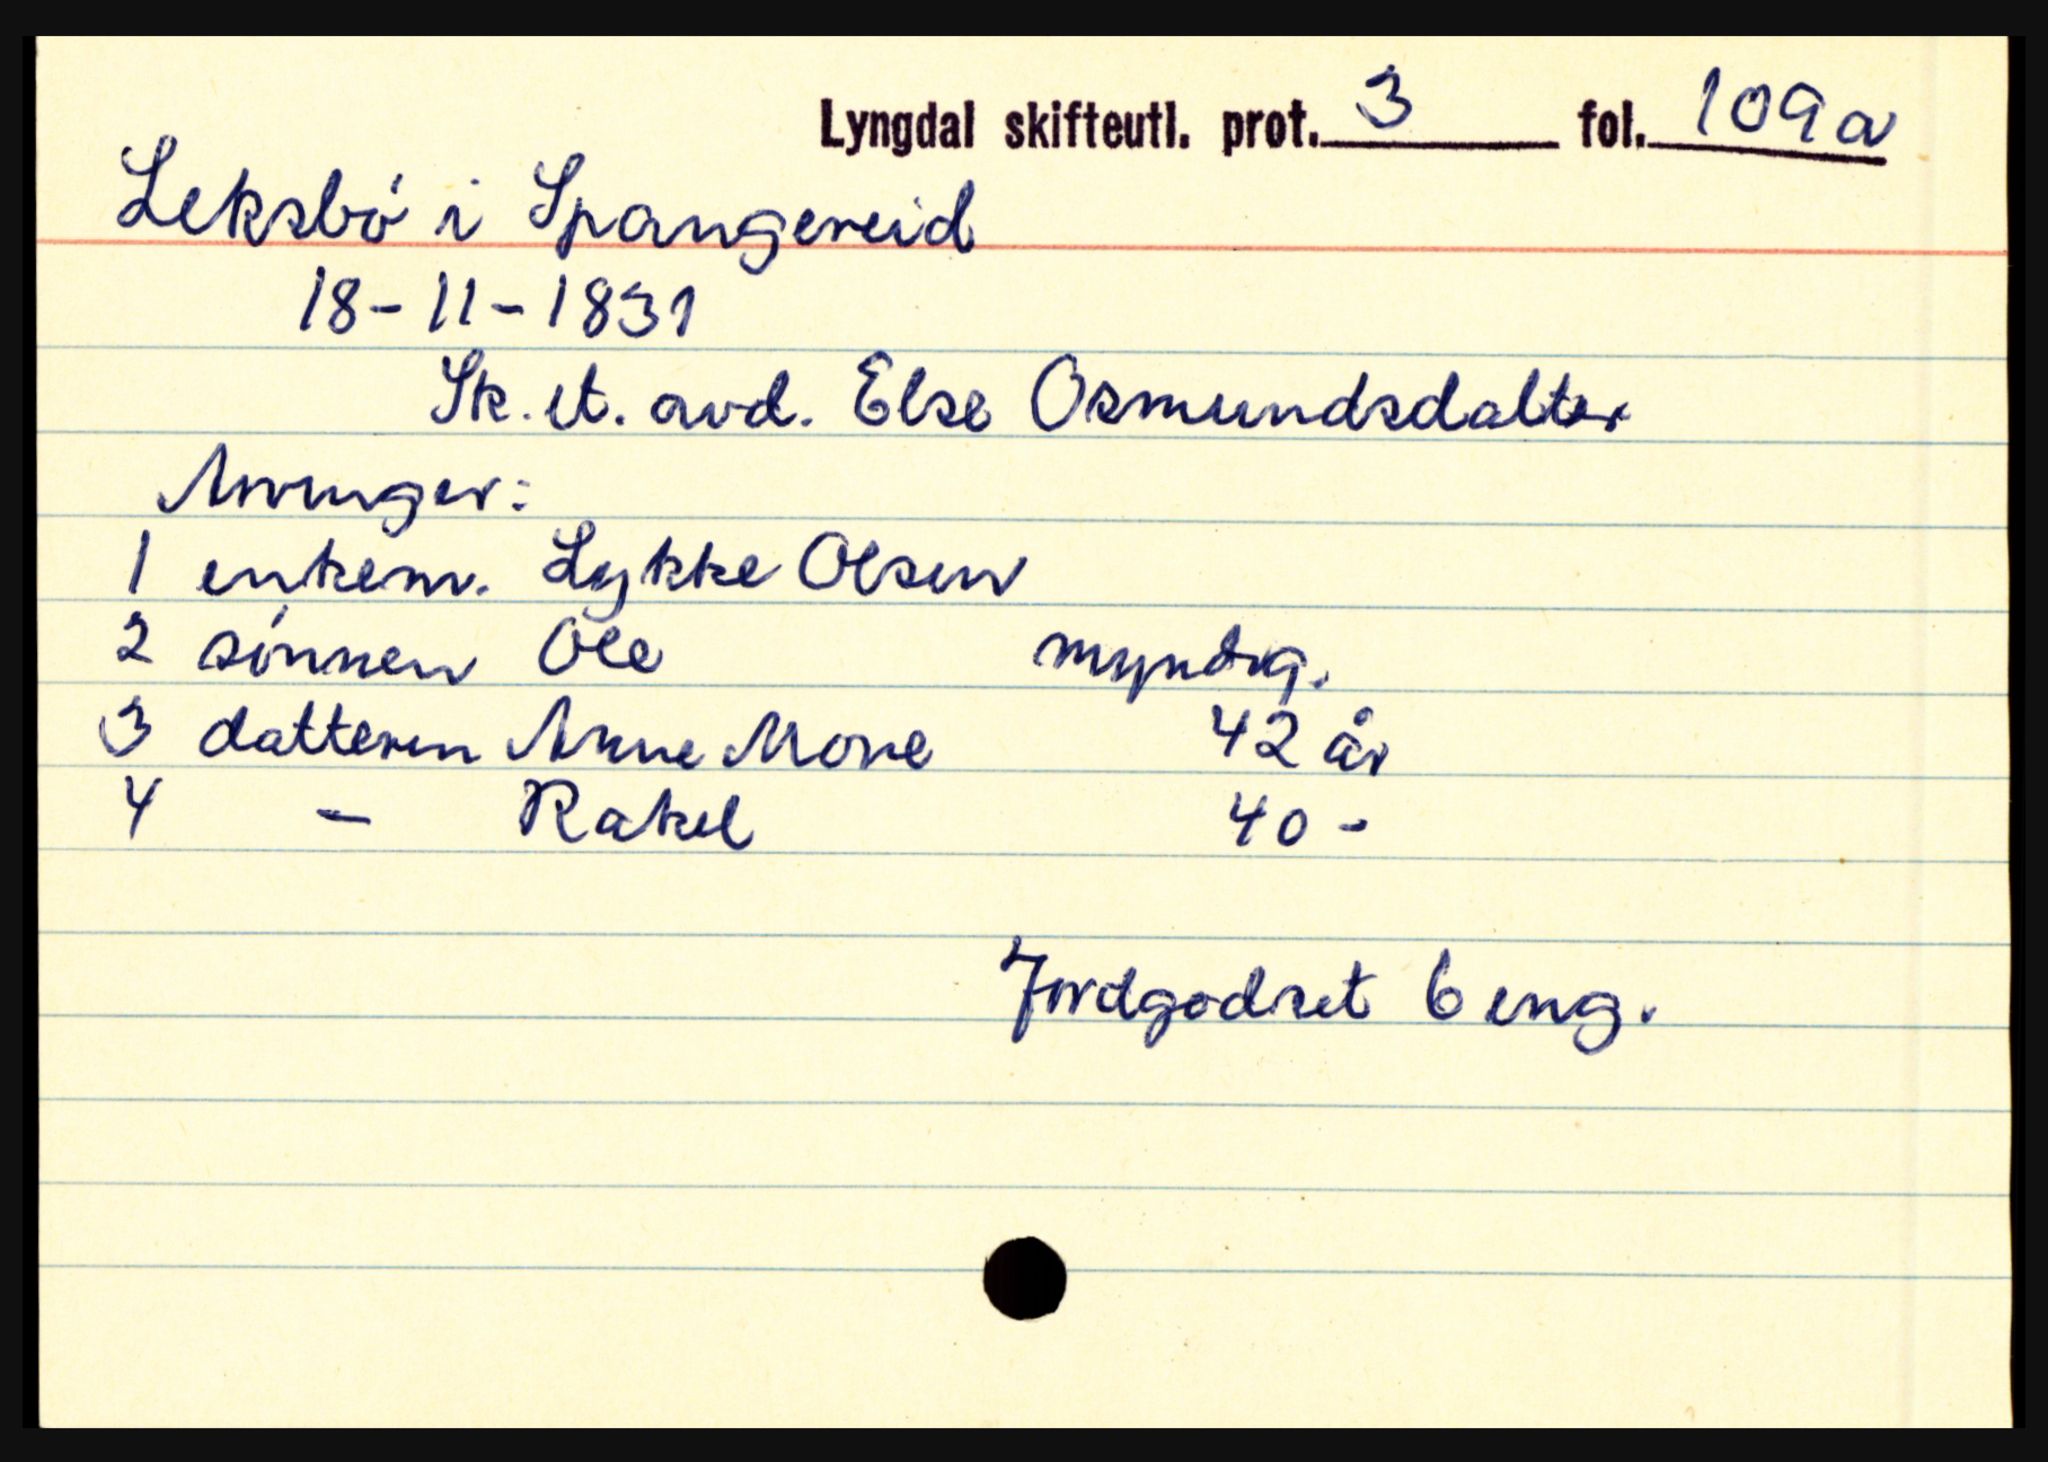 Lyngdal skifteutl. prot. 3 fol. 109a
Leksbö i Spangereid
18-11-1831
Sk. et. avd. Else Osmundsdatter
Arvinger:
1 enkem. Lykke Olsen
2 sönnen Ole myndig.
3 datteren Anne Marie 42 år
4 - Rakel 40 -
Jordgodset 6 eng.